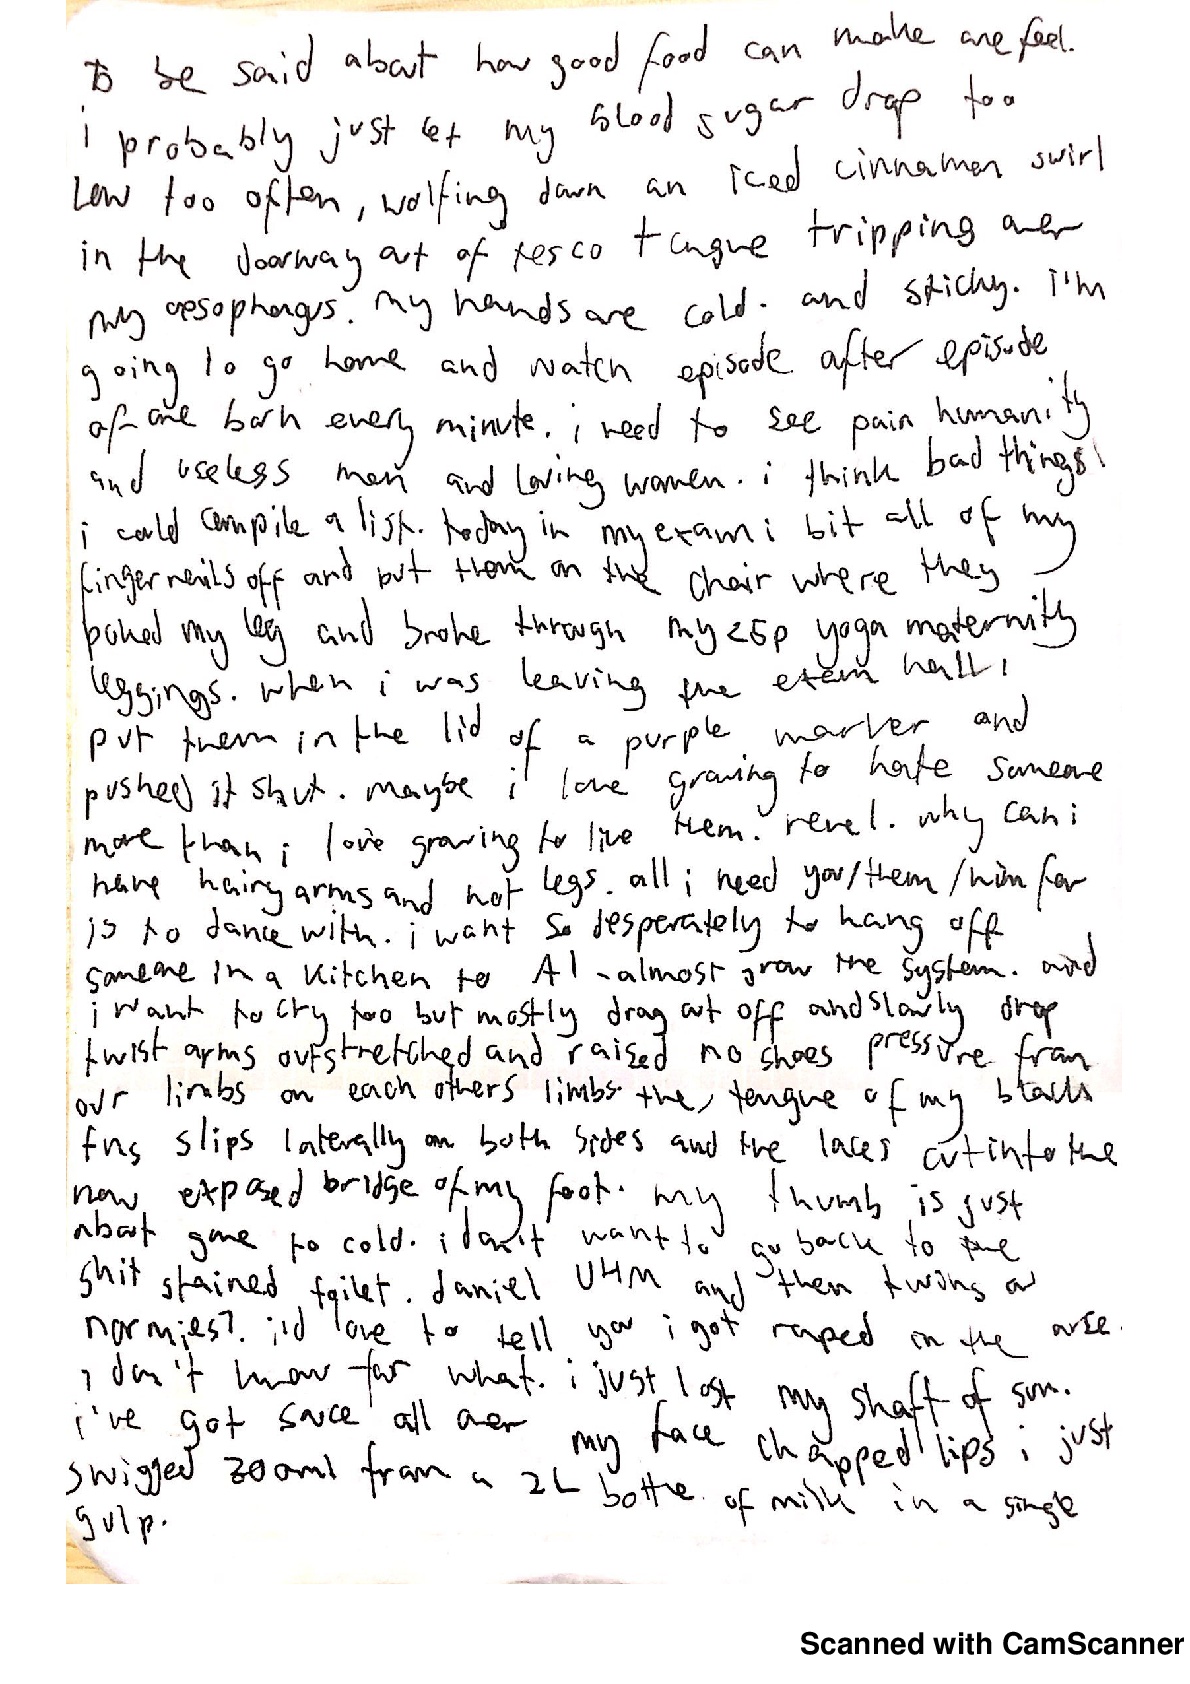 to be said about how good food can make one feel.
i probably just let my blood sugar drop too
low too often, wolfing down an iced cinnamon swirl
in the doorway out of tesco tongue tripping over
my oesophagus. my hands are cold. and sticky. i'm
going to go home and watch episode after episode
of one born every minute. i need to see pain humanity
and useless men and loving women. i think bad things!
i could compile a list. today in my exam i bit all of my
fingernails off and put them on the chair where they
poked my leg and broke through my 25p yoga maternity
leggings. when i was leaving the exam hall i
put them in the lid of a purple marker and
pushed it shut. maybe i love growing to hate someone
more than i love growing to like them. revel. why can i
have hairy arms and not legs. all i need you/them/him for
is to dance with. i want so desperately to hang off
someone in a kitchen to A1 - almost grow the system. and
i want to cry too but mostly drag out off and slowly drop
twist arms outstretched and raised no shoes pressure from
our limbs on each others limbs. the tongue of my black
slips laterally on both sides and the laces cut into the
now exposed bridge of my foot. my thumb is just
about gone to cold. i don't want to go back to the
shit stained toilet. daniel UHM and then twins or
normies?. i'd love to tell you i got raped in the arse.
i don't know for what. i just lost my shaft of sun.
i've got sauce all over my face chapped lips i just
swigged 300ml from a 2L bottle of milk in a single
gulp.
Scanned with CamScanner